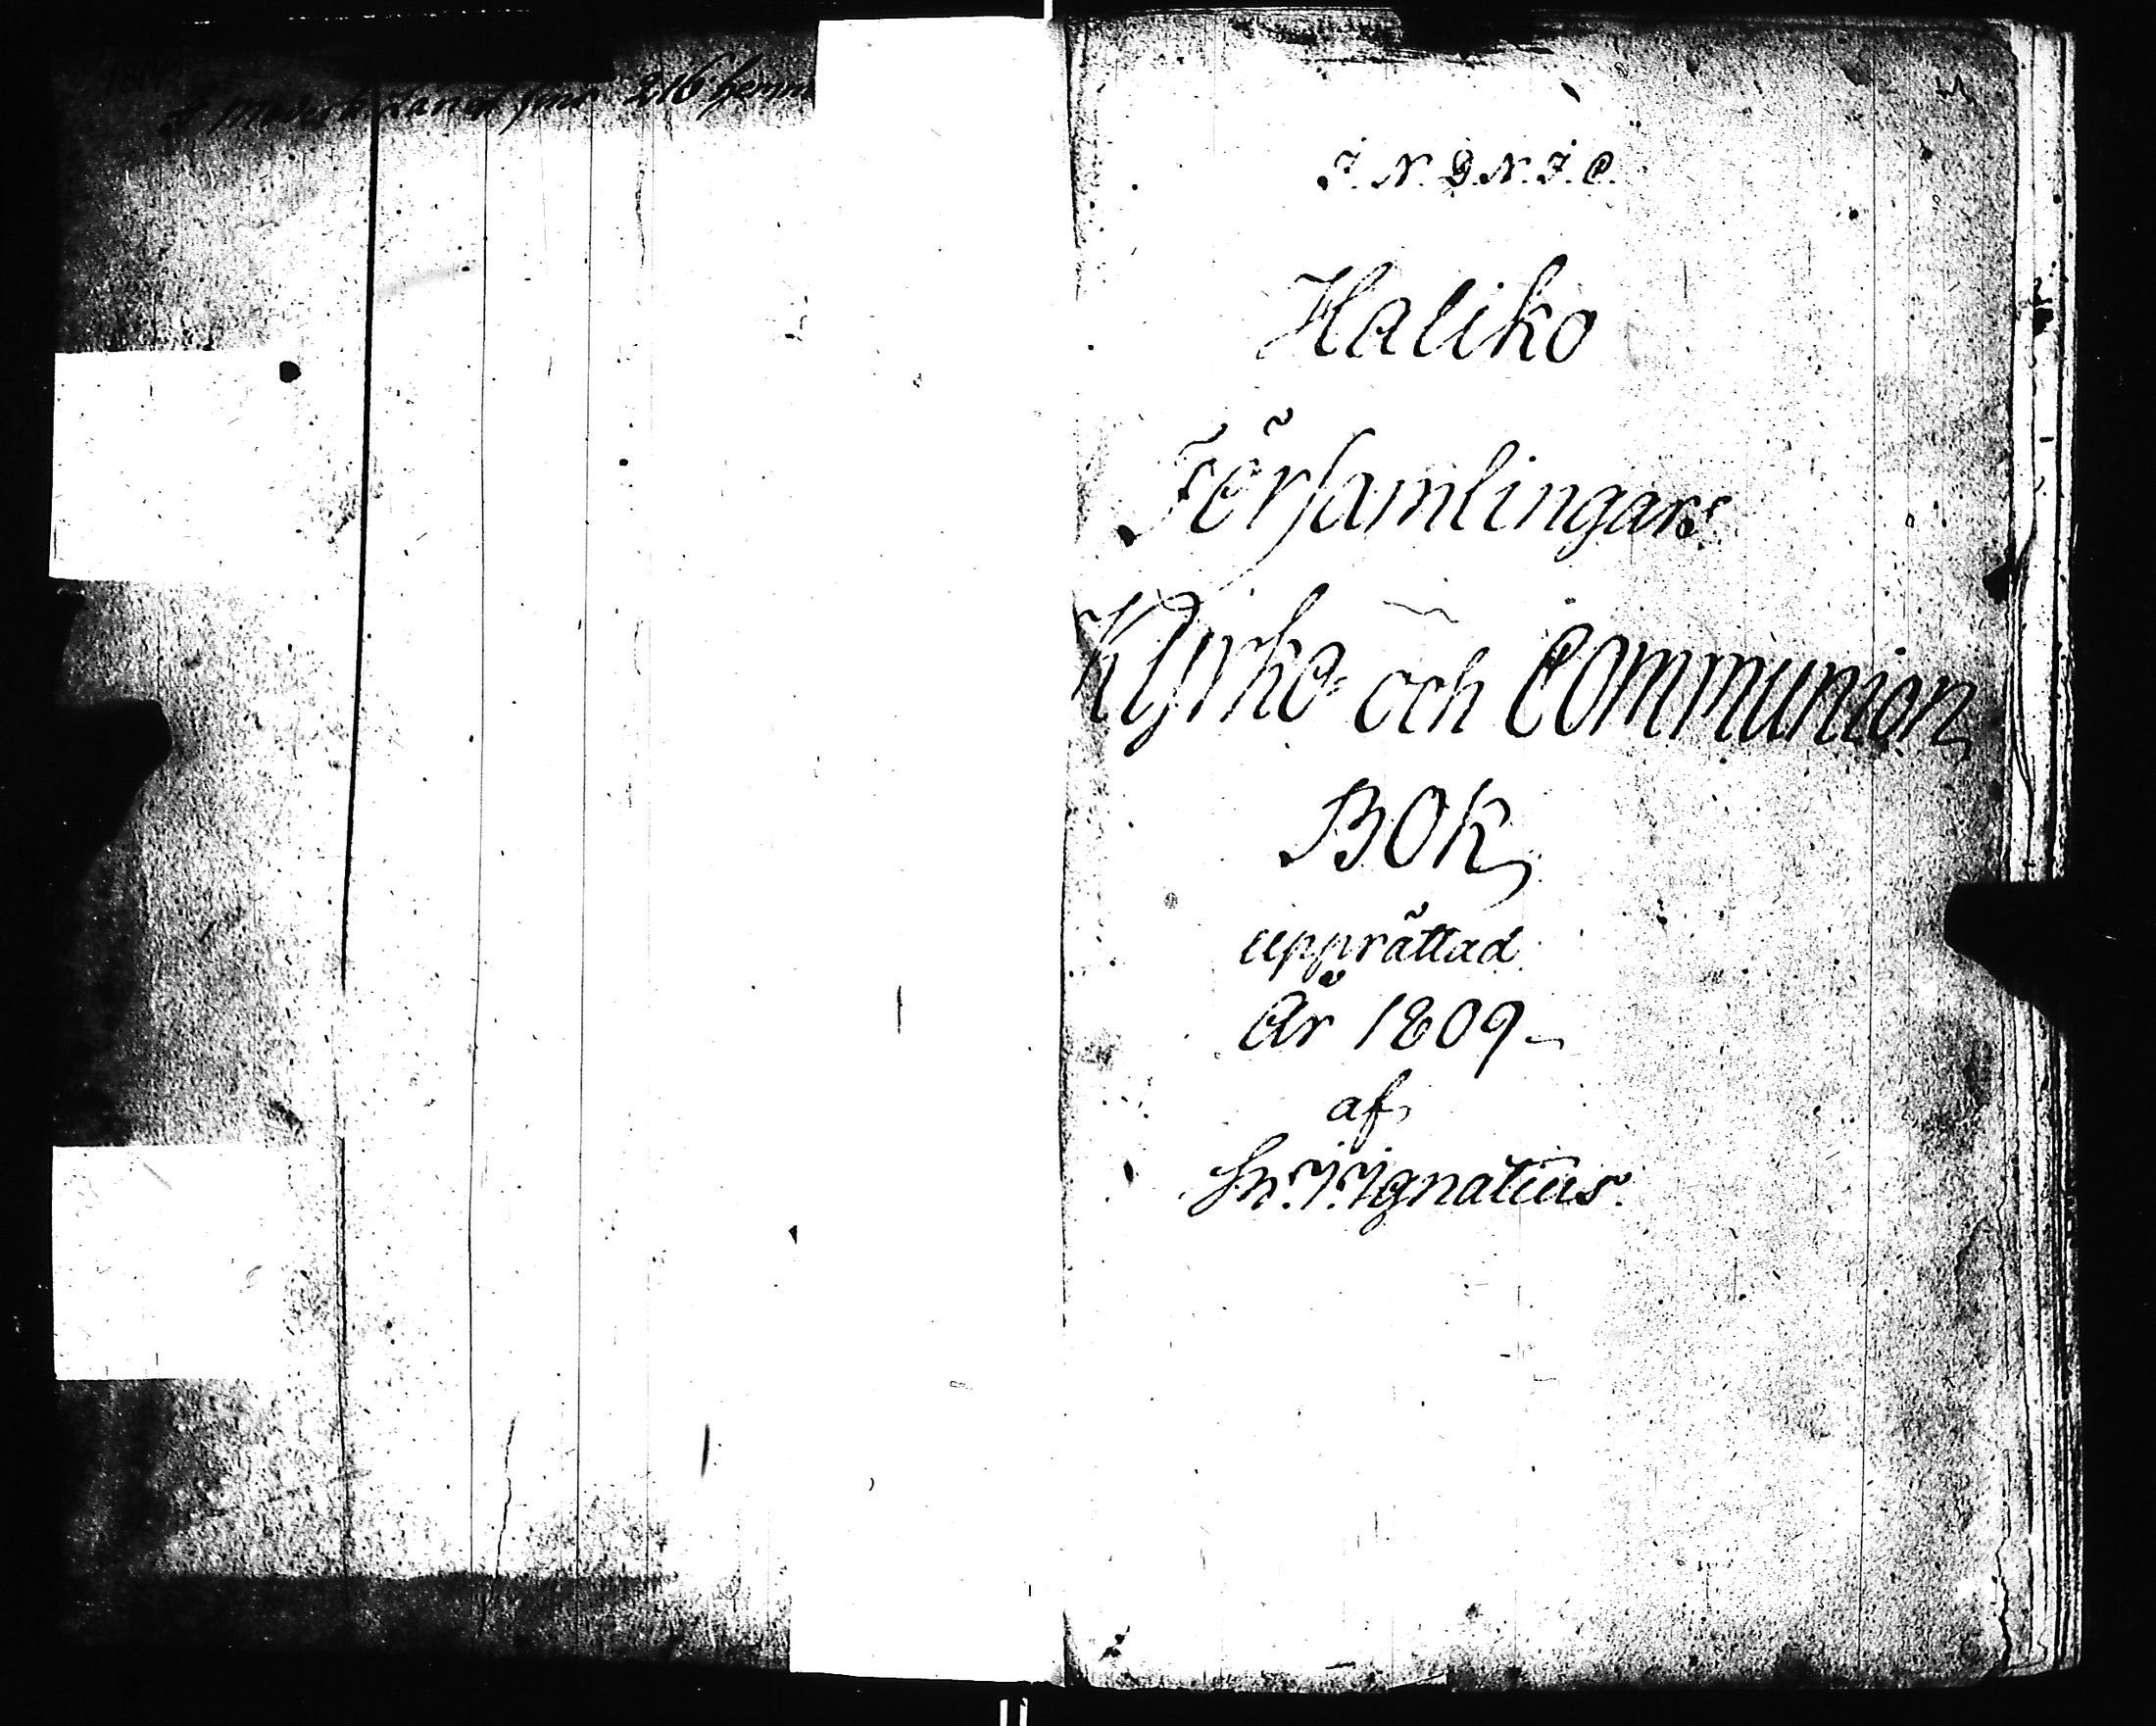 1814
216
I. N. D. N. J. C.
Haliko
Församlingars
Kyrko- och Communion
BOK
upprättad
År 1809-
af
Ignatius.